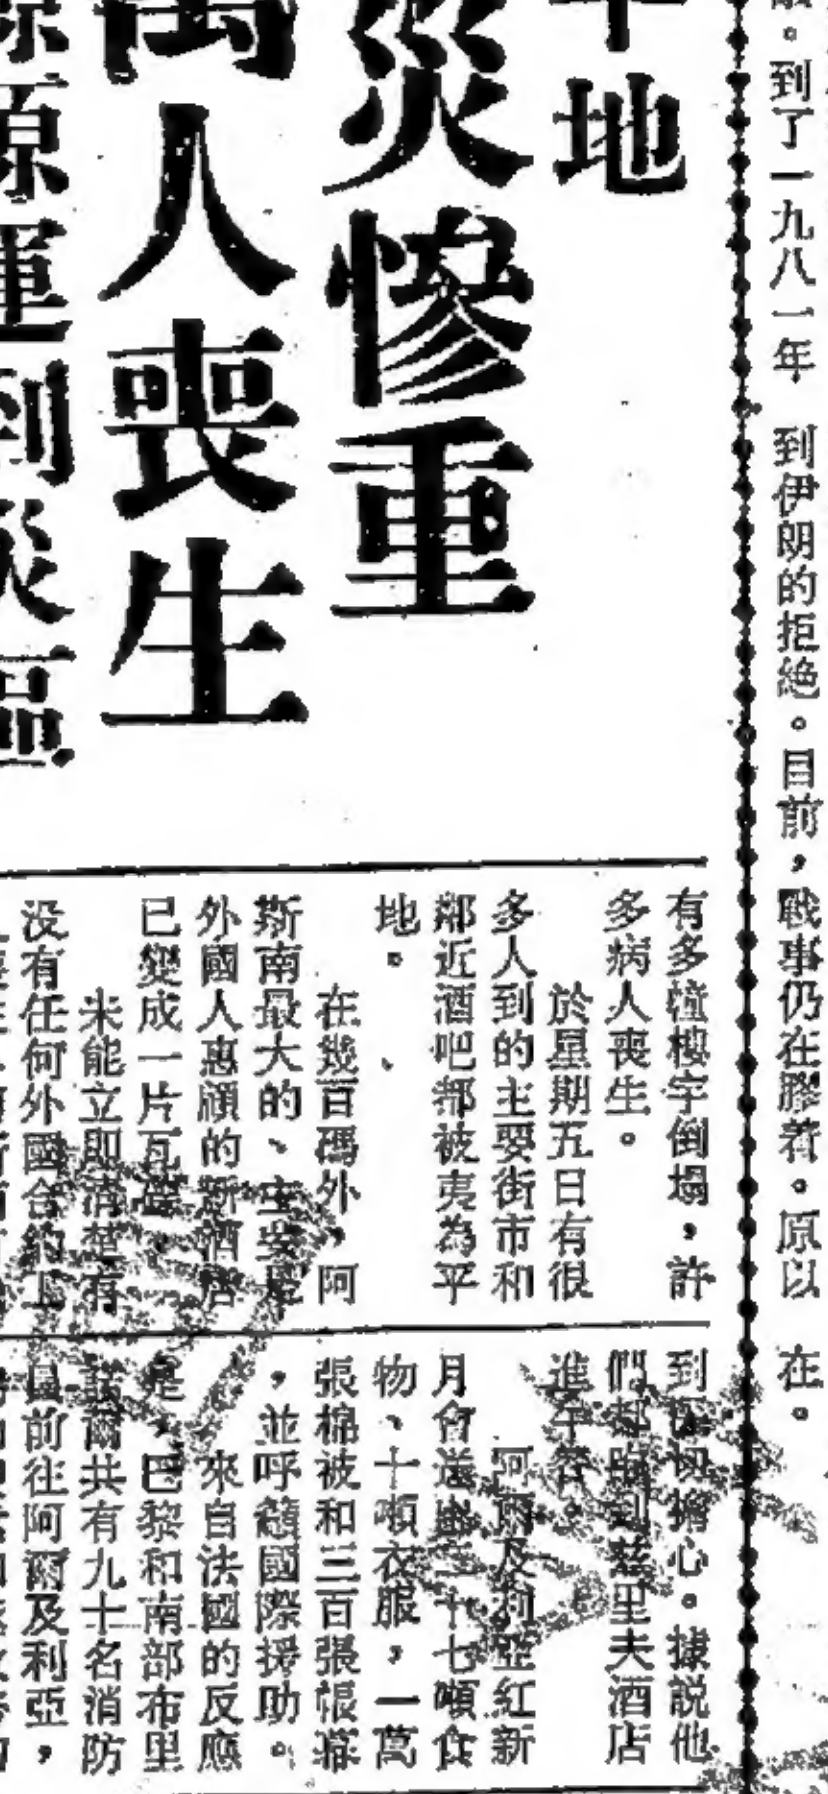 到了一九八一年
到伊朗的拒絶。目前，戰事仍在膠着。原以
在。
地
災慘重
萬人喪生
源運到災區
有多幢樓宇倒塌，許
多病人喪生。
於星期五日有很
多人到的主要街市和
鄰近酒吧都被夷為平
地。
在幾百碼外，阿
斯南最大的、主要是
外國人惠顧的新酒店
已變成一片瓦礫，
未能立即清楚有
没有任何外國合約工
到深切擔心。據説他
們都臨到慈里夫酒店
進午餐。
阿爾及利亞紅新
月會送出二十七噸食
物、十噸衣服，一萬
張棉被和三百張帳幕
，並呼籲國際援助。
來自法國的反應
是，巴黎和南部布里
諾爾共有九十名消防
員前往阿爾及利亞，